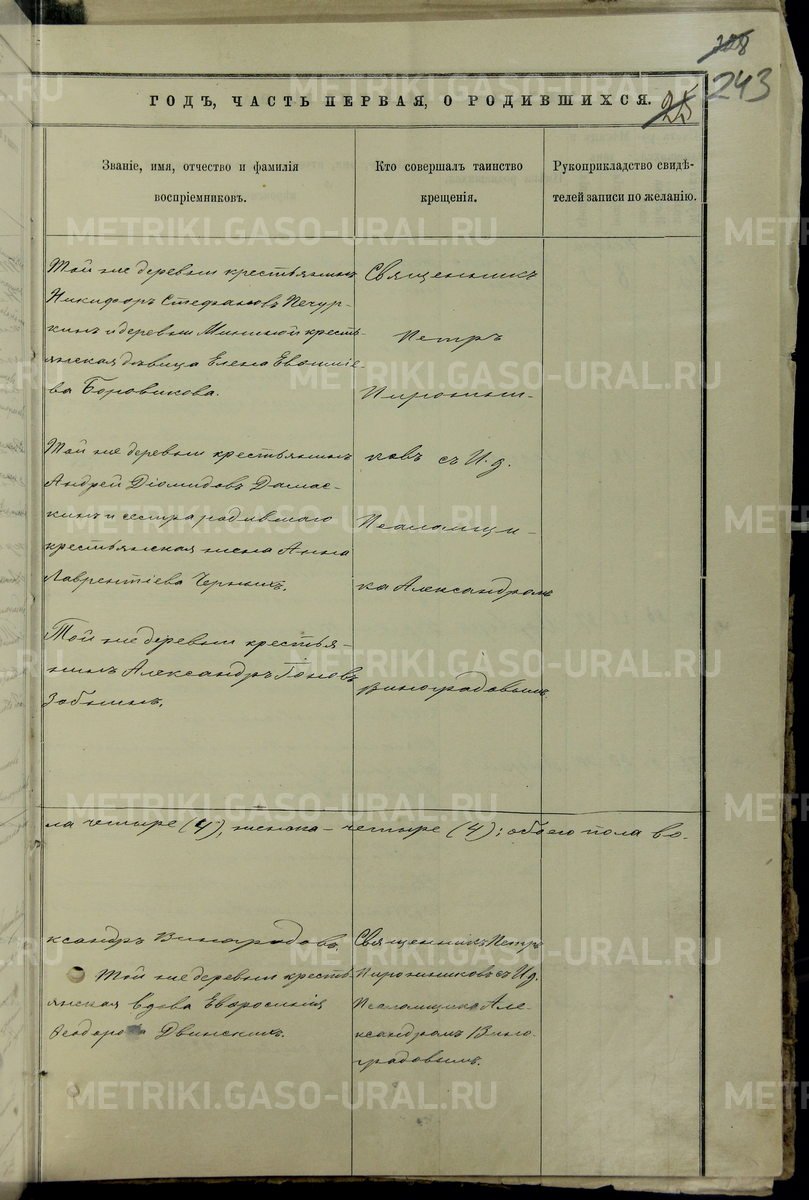 328
243
25
ГОДЪ, ЧАСТЬ ПЕРВАЯ, О РОДИВШИХСЯ.
Званіе, имя, отчество и фамилія
воспріемниковъ.
Кто совершалъ таинство
крещенія.
Рукоприкладство свидѣ-
телей записи по желанію.
Той же деревни крестьянинъ
Никифоръ Стефановъ Печур-
кинъ и деревни Мининой кресть-
янская дѣвица Елена Евѳиміе-
ва Боровикова.
Той же деревни крестьянинъ
Андрей Діомидовъ Дамас-
кинъ и сестра родившаго
крестьянская жена Анна
Лаврентіева Черныхъ.
Той же деревни крестья-
нинъ Александръ Іоновъ
Зобнинъ.
Священникъ
Петръ
Пирожни-
ковъ съ И. д.
Псаломщи-
ка Александромъ
Виноградовымъ.
ла четыре (4), женска - четыре (4); обоего пола во-
ксандръ Виноградовъ.
Той же деревни кресть-
янская вдова Евфросинія
Ѳеодорова Двинскихъ.
Священникъ Петръ
Пирожниковъ съ И. д.
Псаломщика Але-
ксандромъ Вино-
градовымъ.
METRIKI.GASO-URAL.RU